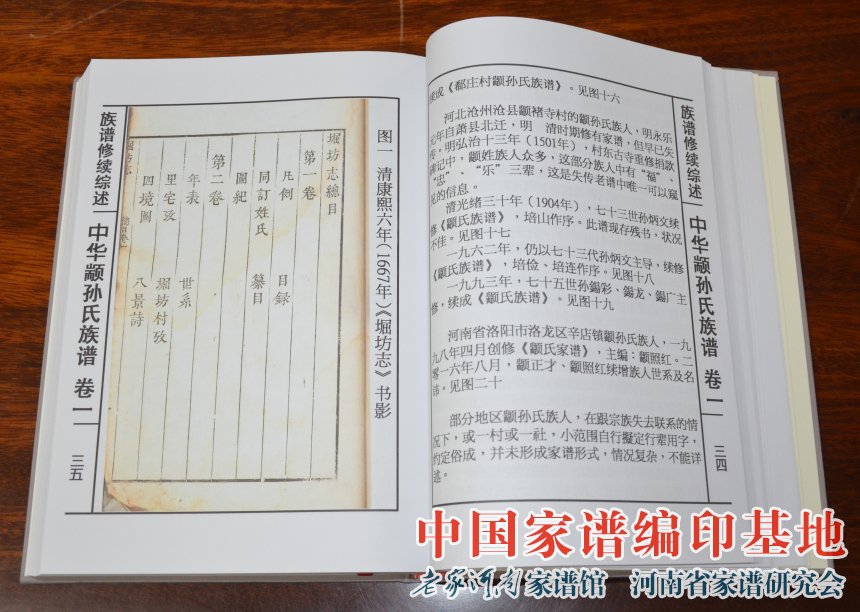 族谱修续综述 中华颛孙氏族谱 卷一 三四
续成《郗庄村颛孙氏族谱》。见图十六
河北沧州沧县颛褚寺村的颛孙氏族人,明永乐
元年自萧县北迁,明 清时期修有家谱,但早已失
传,明弘治十三年(1501年),村东古寺重修捐款
碑记中,颛姓族人众多,这部分族人中有“福”、
“忠”、“乐”三辈,这是失传老谱中唯一可以窥
见的信息。
清光绪三十年(1904年),七十三世孙炳文续
修《颛氏族谱》,培山作序。此谱现存残书,状况
不佳。见图十七
一九六二年,仍以七十三孙炳文主导,续修
《颛氏族谱》,培俭、培连作序。见图十八
一九九三年,七十五世孙鍚彩、鍚龙、鍚广主
修,续成《颛氏族谱》。见图十九
河南省洛阳市洛龙区辛店镇颛孙氏族人,一九
九八年四月创修《颛氏家谱》,主编:颛照红。二
零一六年八月,颛正才、颛照红续增族人世系及名
讳。见图二十
部分地区颛孙氏族人,在跟宗族失去联系的情
况下,或一村或一社,小范围自行擬定行辈用字,
约定俗成,并未形成家谱形式,情况复杂,不能详
述。
图一 清康熙六年(1667年)《堀坊志》书影
堀坊志總目
第一卷
凡例 目録
同訂姓氏 纂目
圖紀
第二卷
年表 世系
里宅攷 堀坊村攷
四境圖 八景詩
堀坊志
族谱修续综述 中华颛孙氏族谱 卷一 三五
中国家谱编印基地
老家河南家谱馆 河南省家谱研究会